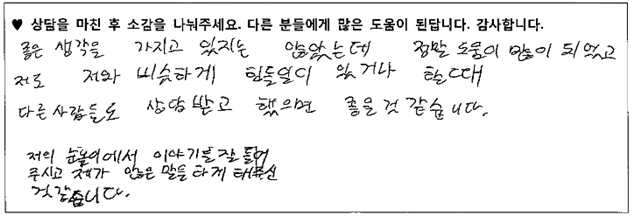 ♥ 상담을 마친 후 소감을 나눠주세요. 다른 분들에게 많은 도움이 된답니다. 감사합니다.
좋은 생각을 가지고 있지는 않았는데 정말 도움이 많이 되었고
저도 저와 비슷하게 힘든일이 있거나 할때
다른사람들도 상담받고 했으면 좋을것 같습니다.
저의 눈높이에서 이야기를 잘 들어
주시고 제가 않은 말들 다 하게 해주신
것같습니다.